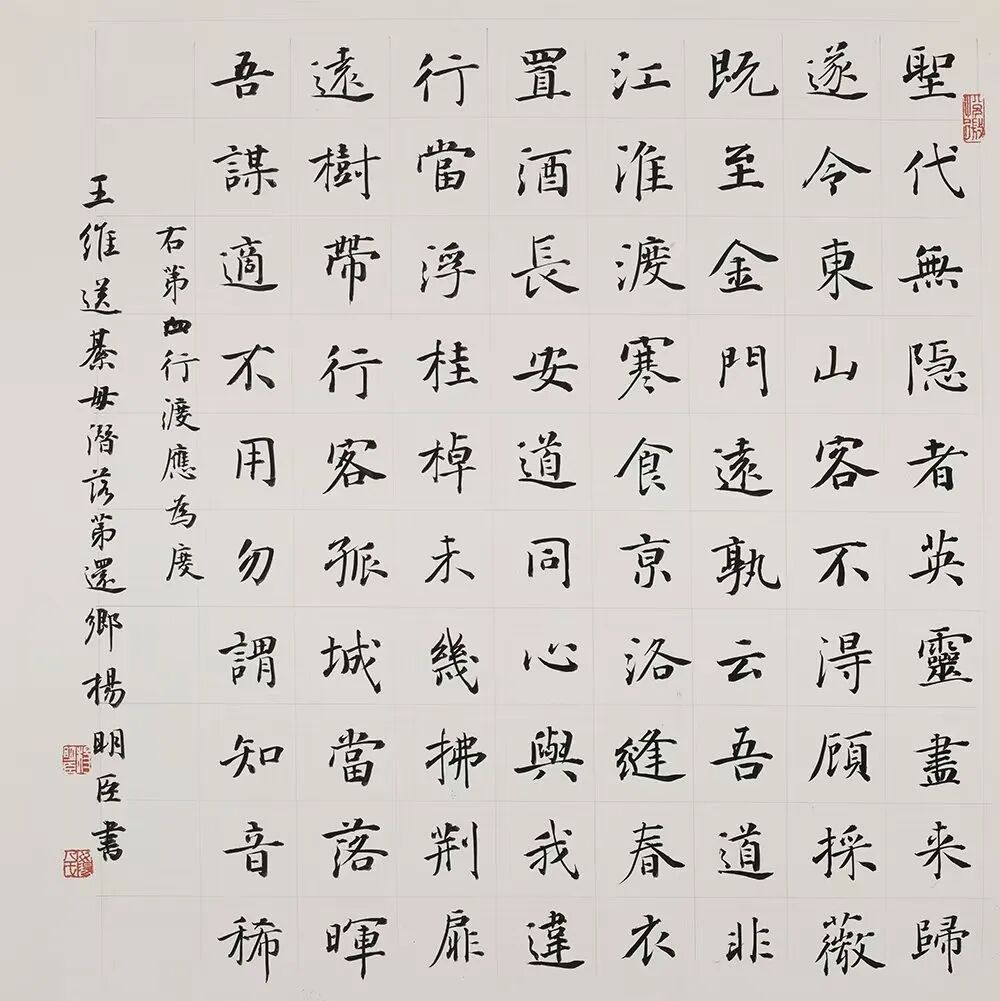 聖代無隐者英靈盡来歸
遂令東山客不淂顧採薇
既至金門遠孰云吾道非
江淮渡寒食京洛縫春衣
置酒長安道同心與我違
行當浮桂棹未幾拂荆扉
遠樹帶行客孤城當落暉
吾謀適不用勿謂知音稀
右第四行渡應為度
王維送綦毋潛落第還鄉楊明臣書